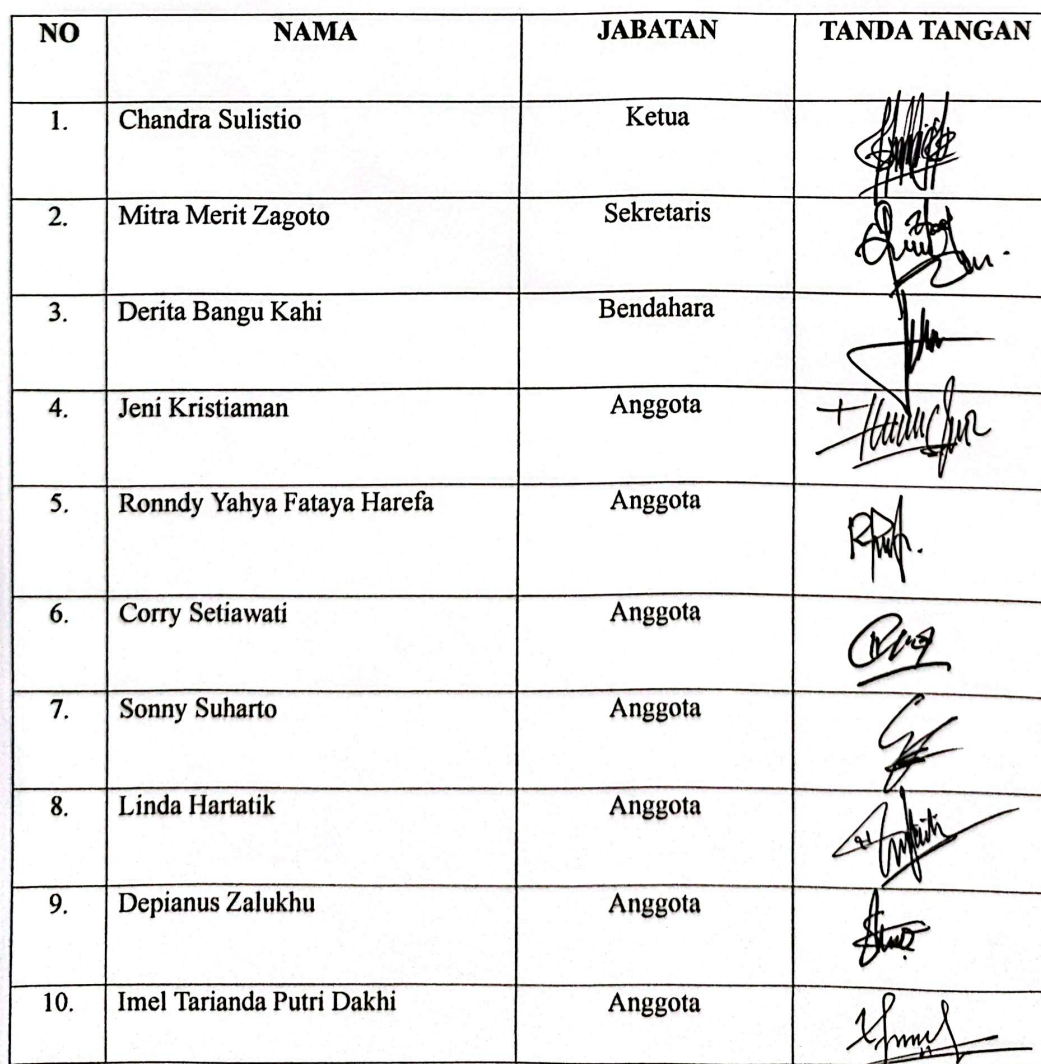 NO NAMA JABATAN TANDA TANGAN
1. Chandra Sulistio Ketua
2. Mitra Merit Zagoto Sekretaris
3. Derita Bangu Kahi Bendahara
4. Jeni Kristiaman Anggota
5. Ronndy Yahya Fataya Harefa Anggota
6. Corry Setiawati Anggota
7. Sonny Suharto Anggota
8. Linda Hartatik Anggota
9. Depianus Zalukhu Anggota
10. Imel Tarianda Putri Dakhi Anggota